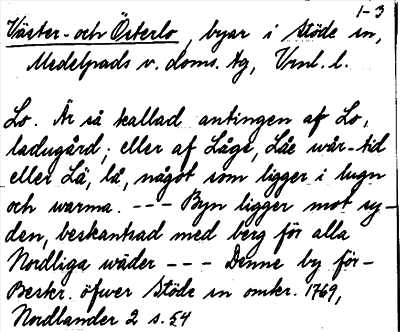 1-3
Väster- och Österlo, byar i Stöde sn,
Medelpads v. doms. tg, Vrnl. l.
Lo. Är så kallad antingen af Lo,
ladugård; eller af Låge, Låe wår-tid
eller Lä, lå, något som ligger i lugn
och warma. --- Byn ligger mot sy-
den, beskantrad med berg för alla
Nordliga wäder --- Denne by för-
Beskr. öfwer Stöde sn omkr. 1769,
Nordlander 2 s. 54